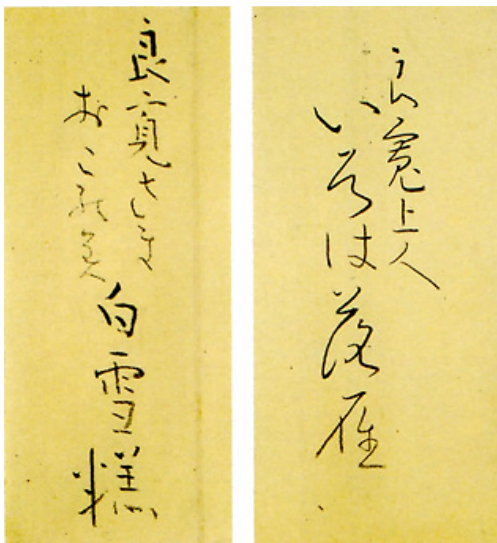 良寛上人
いろは落雁
良寛さま
おこのみ
白雪糕